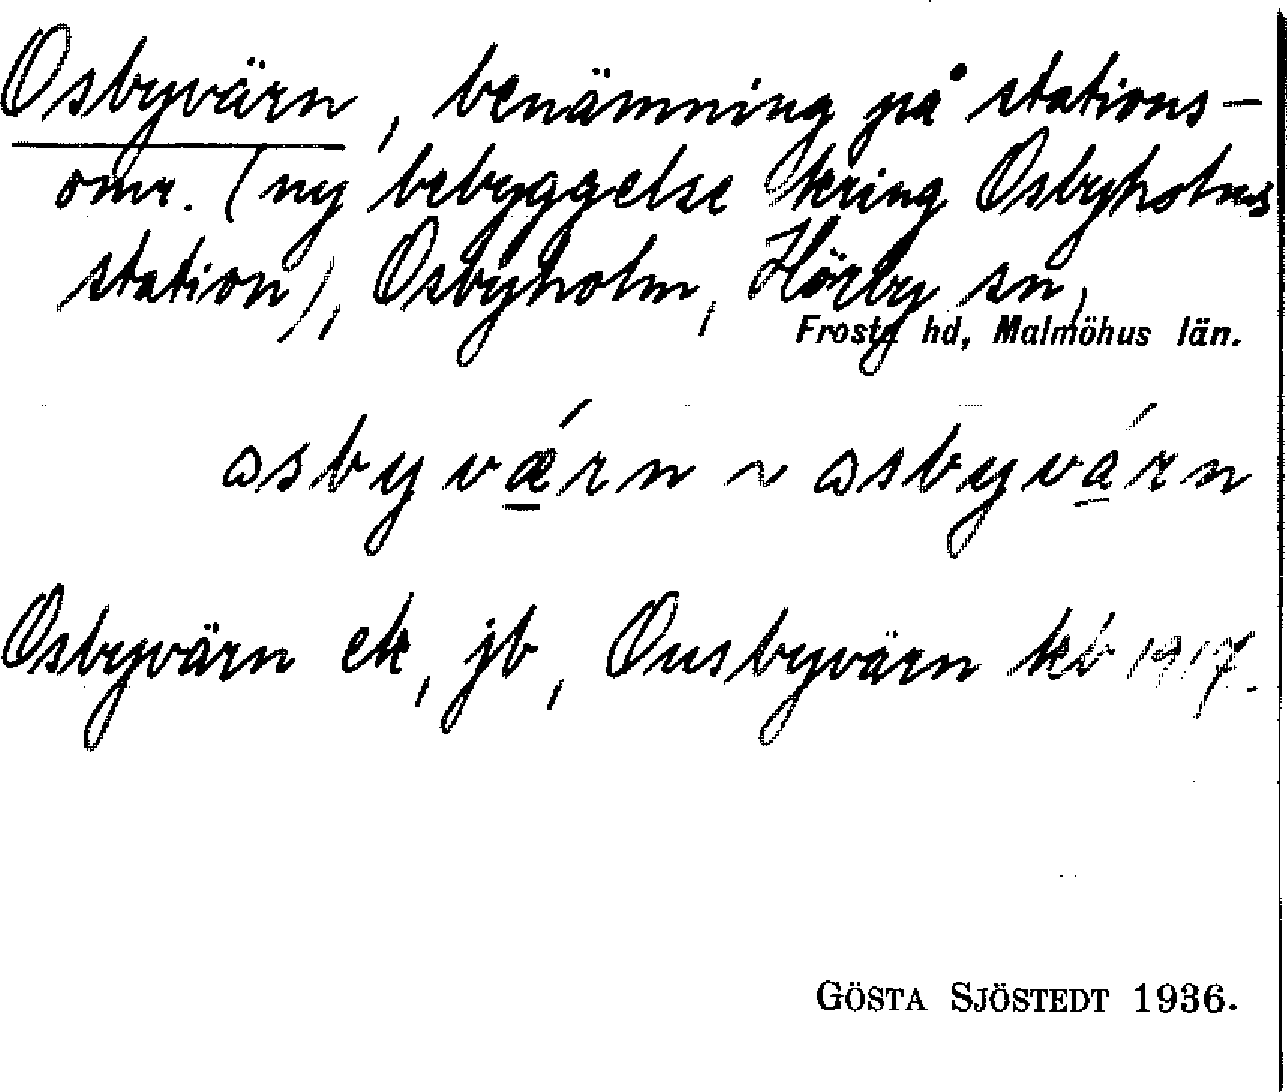 Osbyvärn, benämning på stations-
omr. (ny bebyggelse kring Osbyholms
station), Osbyholm, Hörby sn,
Frosta hd, Malmöhus län.
asbyvǽrn ~ asbyvárn
Osbyvärn ek, jb, Ousbyvärn kb 1917.
GÖSTA SJÖSTEDT 1936.